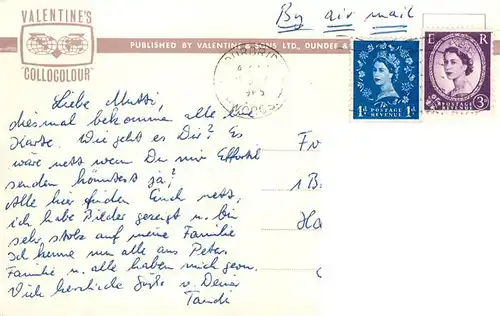 VALENTINE'S
"COLLOCOLOUR"
PUBLISHED BY VALENTINE & SONS LTD., DUNDEE &
By air mail
POSTAGE REVENUE
1D 1D
E R
POSTAGE REVENUE
3D
Liebe Mutti,
diesmal bekommen alle eine
Karte. Wie geht es Dir? Es
wäre nett wenn Du mir
senden könntest ja?
Alle hier finden Euch nett,
ich habe Bilder gezeigt u. bin
sehr stolz auf meine Familie
Ich kenne nun alle aus Peters
Familie u. alle haben mich gern.
Viele herzliche Grüße v. Deiner
Fr
1 B
Ha